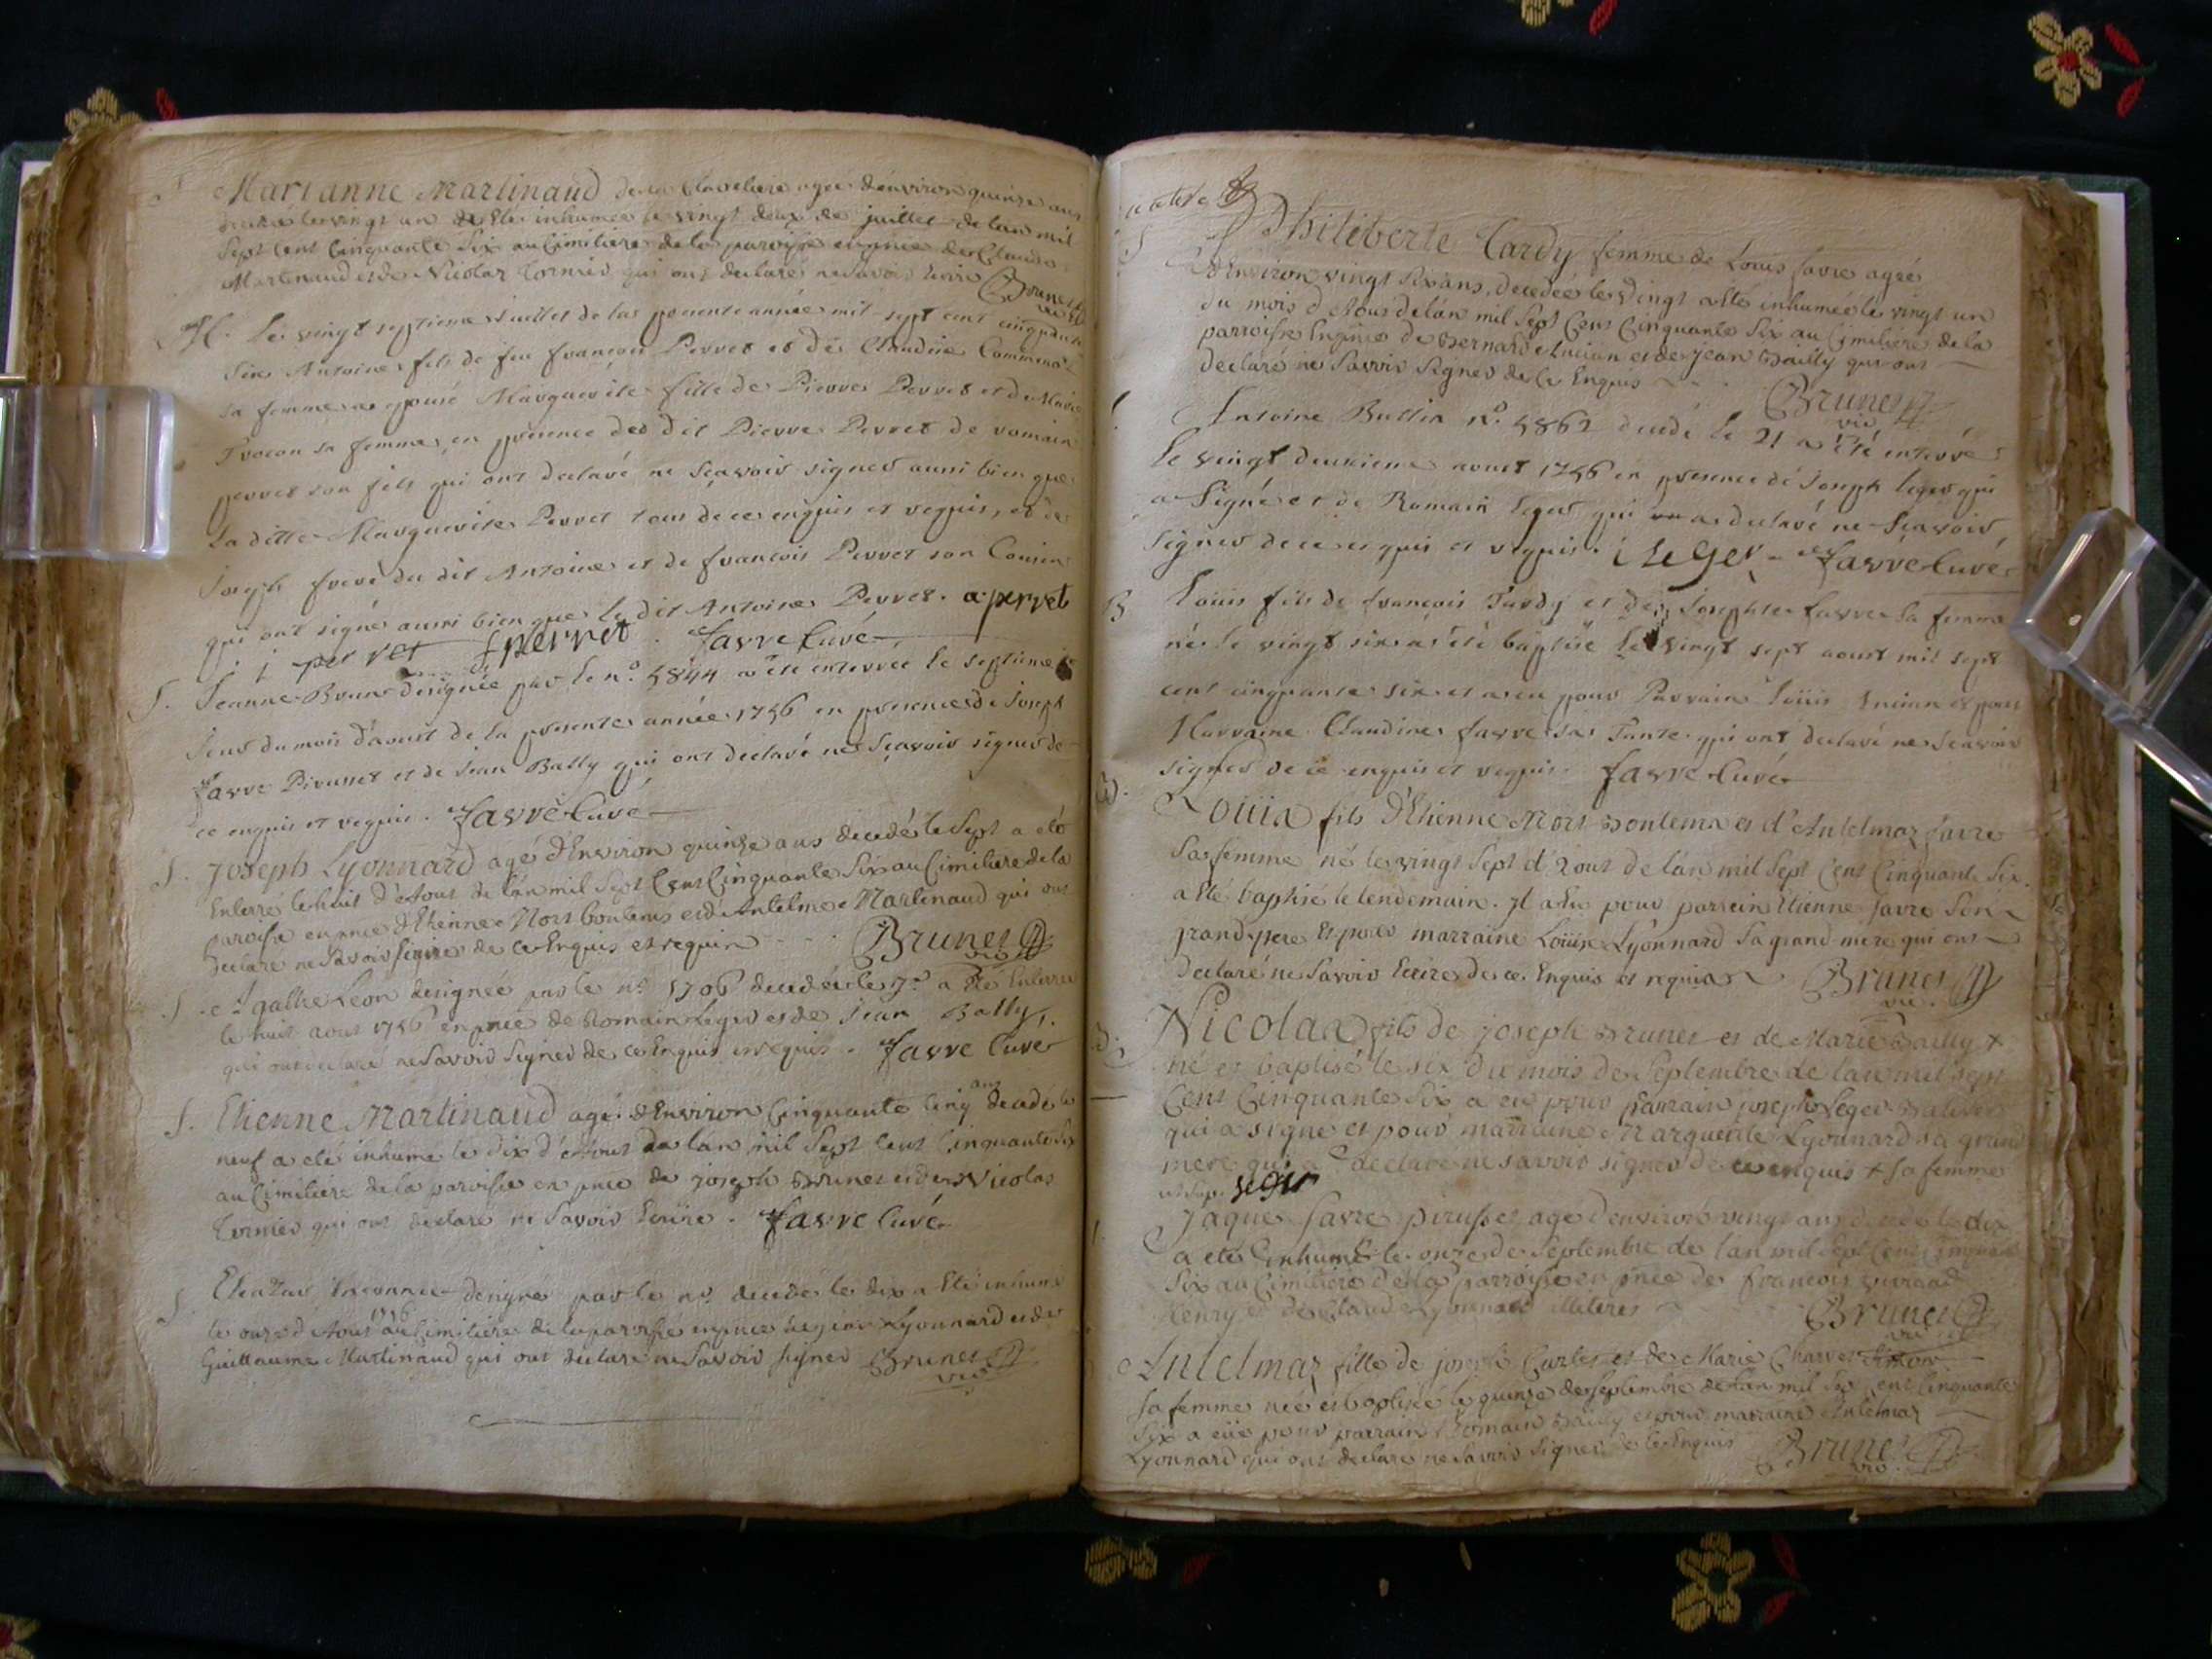 Marianne Martinaud de la Claveliere agée d'environ quinze ans
decedée le vingt un a Eté inhumée le vingt deux de juillet de l'an mil
Sept Cent Cinquante Six au Cimitiere de la paroisse en pnce de Claude
Martinaud et de Nicolas Cornier qui ont declaré ne Savoir Ecrire Brunet
vic
M. Le vingt septieme Juillet de la presente année mil sept cent cinquante
Six Antoine fils de feu françois Perret et de Claudine
sa femme a epousé Marguerite fille de Pierre Perret et de Marie
sa femme, en presence du dit Pierre Perret de romain
perret son fils qui ont declaré ne Sçavoir signer aussi bien que
La ditte Marguerite Perret tous de ce enquis et requis, et de
Joseph frere du dit Antoine et de françois Perret son Cousin
qui ont signé aussi bien que le dit Antoine Perret. a perret
j perret f perret Favre Curé
S. Jeanne Brun designée par le n.º 5844 a été enterrée le septieme
Jour du mois d'aoust de la presente année 1756 en presence de Joseph
Favre Pirusset et de Jean Bally qui ont declaré ne Sçavoir signer de
ce enquis et requis. Favre Curé
S. Joseph Lyonnard agé d'Environ quinze ans decedé le Sept a eté
Enterré le huit d'Aout de l'an mil Sept Cent Cinquante Six au Cimitiere de la
paroisse en pnce d'Etienne Mort Bontems et d'Antelme Martinaud qui ont
declaré ne Savoir signer de ce Enquis et requis Brunet
vic
S. Agathe Leon designée par le nº 5706 decedée le 7.e a Eté Enterrée
le huit aout 1756 en pnce de Romain Leger et de Jean Bally,
qui ont declaré ne Savoir Signer de ce Enquis et requis. Favre Curé
S. Etienne Martinaud agé d'Environ Cinquante Cinq ans decedé le
neuf a eté inhumé le dix d'Aout de l'an mil Sept Cent Cinquante Six
au Cimitiere de la paroisse en pnce de joseph Brunet et de Nicolas
Cornier qui ont declaré ne Savoir Ecrire. Favre Curé
S designé par le nº. decedé le dix a Eté inhumé
le onze d'Aout 1756 au Cimitiere de la paroisse en pnce de jean Lyonnard et de
Guillaume Martinaud qui ont declaré ne Savoir signer Brunet
vic
S Philiberte Tardy femme de Louis favre agée
d'Environ vingt Six ans, decedée le vingt a Eté inhumée le vingt un
du mois d'Aout de l'an mil Sept Cent Cinquante Six au Cimitiere de la
parroisse En pnce de Bernard et de jean Bailly qui ont
declaré ne Savoir Signer de Ce Enquis Brunet
vic
Antoine Bullin nº. 5862 decedé le 21 a été enterré
le vingt deuxieme aoust 1756 en presence de Joseph leger qui
a Signé et de Romain leger qui a declaré ne Sçavoir
signer de ce enquis et requis. i leger Favre Curé
B Loüis fils de françois Tardy et de Josephte favre sa femme
né le vingt six a été baptisé le vingt sept aoust mil sept
cent cinquante six et a eu pour Parrain Loüis et pour
Marraine Claudine favre sa Tante qui ont declaré ne Sçavoir
signer de ce enquis et requis. favre Curé
B. Loüis fils d'Etienne Mort Bontems et d'Antelmaz favre
Sa femme né le vingt Sept d'Aout de l'an mil Sept Cent Cinquante Six
a Eté baptisé le lendemain. Il a Eu pour parrein Etienne favre Son
grand pere Et pour marraine Loüise Lyonnard Sa grand mere qui ont
declaré ne Savoir Ecrire de ce Enquis et requis Brunet
vic.
B. Nicolas fils de joseph Brunet et de Marie Bailly +
né et baptisé le six du mois de Septembre de l'an mil sept
Cent Cinquante Six a eu pour parrain joseph Leger
qui a signé et pour marraine Marguerite Lyonnard sa grand
mere qui a declaré ne savoir signer de ce enquis + sa femme
ut sup. leger
Jaque favre pirusset agé d'environ vingt ans decedé le dix
a eté inhumé le onze de Septembre de l'an mil Sept Cent Cinquante
Six au Cimitiere de la parroisse en pnce de francois
Henry et de Claude Lyonnard illiteres Brunet
vic
Antelmaz fille de joseph Curtet et de Marie Charvet
sa femme née et baptisée le quinze de Septembre de l'an mil Sept Cent Cinquante
Six a eüe pour parrain Romain Bailly et pour marraine Antelmaz
Lyonnard qui ont declaré ne Savoir Signer de ce Enquis Brunet
vic.